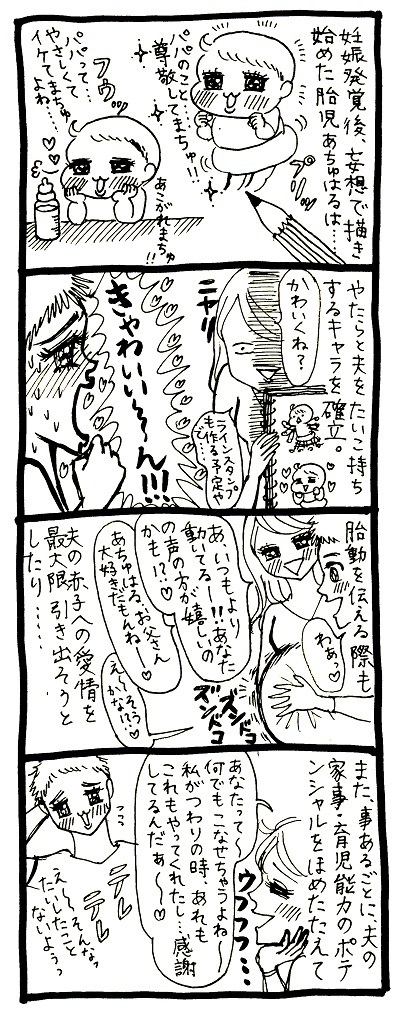 妊娠発覚後、妄想で描き
始めた胎児あちゅはるは……
パパのこと
尊敬してまちゅ!!
プリッ
フゥッ
パパって…
やさしくて
イケてまちゅ
よね…
あこがれまちゅ
!!
やたらと夫をたいこ持ち
するキャラを確立。
かわいくね?
ニヤリ
ラインスタンプ
も作る予定や
で…
きゃわいい〜ん!!!
胎動を伝える際も
わぁっ♡
あ、いつもより
動いてるー!!あなた
の声の方が嬉しいの
かも!?♡
あちゅはる、お父さん
大好きだもんねー♡
ズンドコ
ズンドコ
え〜そう
かな!?♡
夫の赤子への愛情を
最大限引き出そうと
したり……
また、事あるごとに、夫の
家事・育児能力のポテ
ンシャルをほめたたえて
あなたって〜
何でもこなせちゃうよね〜
私がつわりの時、あれも
これもやってくれたし…感謝
してるんだぁ〜♡
ウフフフ…
テレ
テレ
え〜そんなっ
たいしたこと
ないようっ